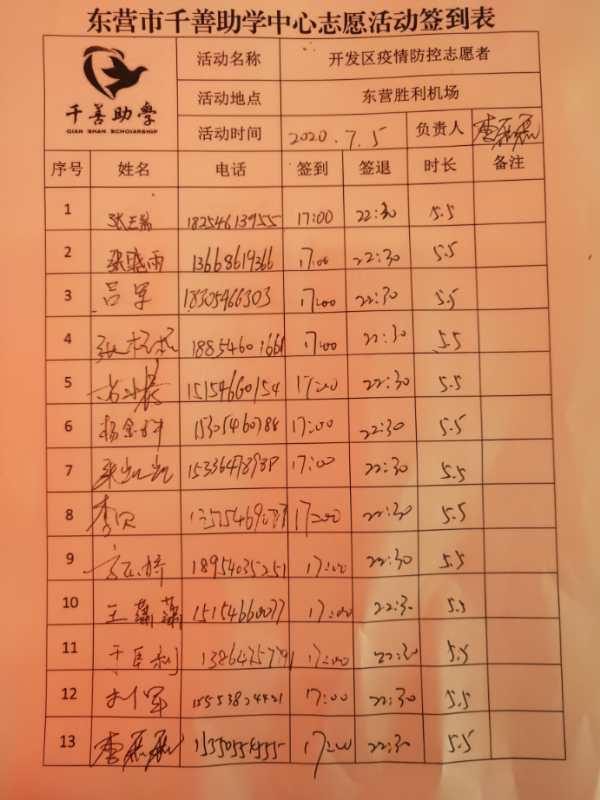 东营市千善助学中心志愿活动签到表
千善助学
QIAN SHAN SCHOLARSHIP
活动名称 开发区疫情防控志愿者
活动地点 东营胜利机场
活动时间 2020.7.5 负责人 李磊磊
序号 姓名 电话 签到 签退 时长 备注
1 18254613955 17:00 22:30 5.5
2 张晓雨 13668619366 17:00 22:30 5.5
3 吕军 18305466303 17:00 22:30 5.5
4 18854601661 17:00 22:30 5.5
5 15154660154 17:00 22:30 5.5
6 15305460788 17:00 22:30 5.5
7 17:00 22:30 5.5
8 李贝 17:00 22:30 5.5
9 18954035251 17:00 22:30 5.5
10 王潇潇 15154660077 17:00 22:30 5.5
11 17:00 22:30 5.5
12 刘军 15553824421 17:00 22:30 5.5
13 李磊磊 17:00 22:30 5.5